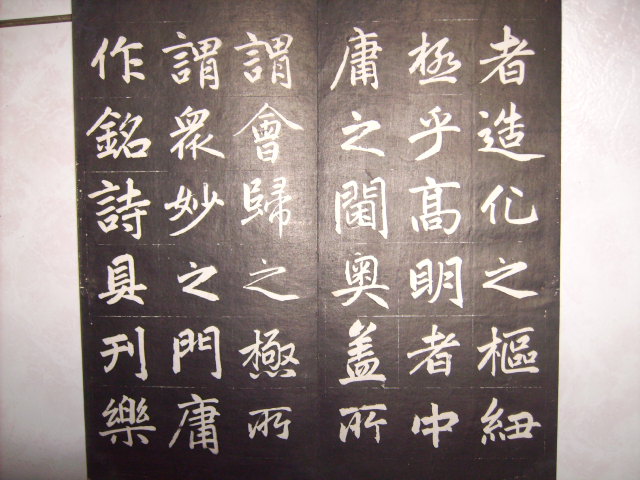 者造化之樞紐
極乎高明者中
庸之閫奧蓋所
謂會歸之極所
謂衆妙之門庸
作銘詩具刊樂